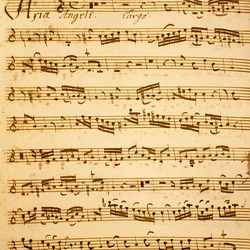 Aria Angeli. Largo